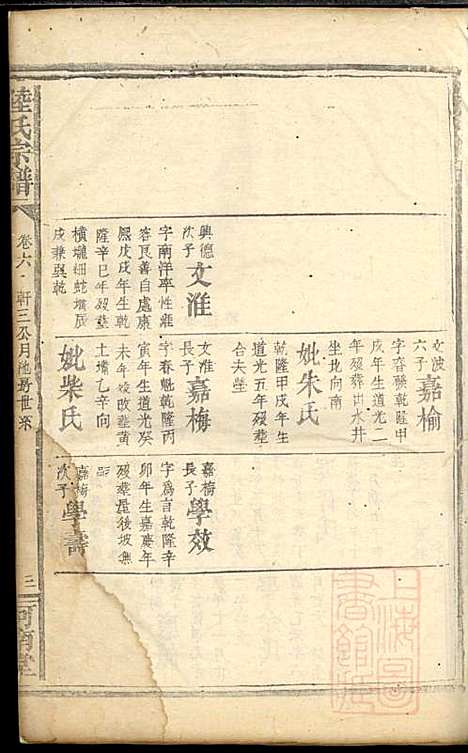 陸氏宗譜
卷六
軒三公月池房世系
三
河南堂
興德
次子
文淮
字南洋率性雍
容良善自處康
熙戊戌年生乾
隆辛巳年歿塟
橫壠細蛇墈辰
戌兼巽乾
文波
六子
嘉榆
字春藤乾隆甲
戌年生道光二
年歿葬田水井
坐北向南
妣朱氏
乾隆甲戌年生
道光五年歿塟
合夫塋
文淮
長子
嘉梅
字春魁乾隆丙
寅年生道光癸
未年歿改塟黃
土墈乙辛向
妣柴氏
嘉梅
長子
學效
字為言乾隆辛
卯年生嘉慶年
歿塟屋後坡無
嘉梅
次子
學壽
上海圖書館藏